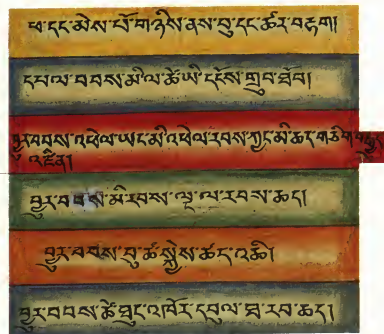 ཕ་དང་མེས་པོ་གཉིས་ནས་བུ་དང་ཚར་བརྟག།
དཔལ་བབས་མི་ལ་ཚེ་ཡི་དངོས་གྲུབ་ཐོབ།
བྱུར་བབས་འཕེལ་ཡང་མི་འཕེལ་རབས་ཀྱང་མི་ཆད་གཅིག
འཛིན།
བྱུར་བབས་མི་རབས་ལྔ་ལ་རབས་ཆད།
བྱུར་བབས་བུ་ཚ་སྐྱེས་ཚད་འཆི།
བྱུར་བབས་ཚེ་ཐུང་འཁོར་དབུལ་ཐ་རབ་ཆད།